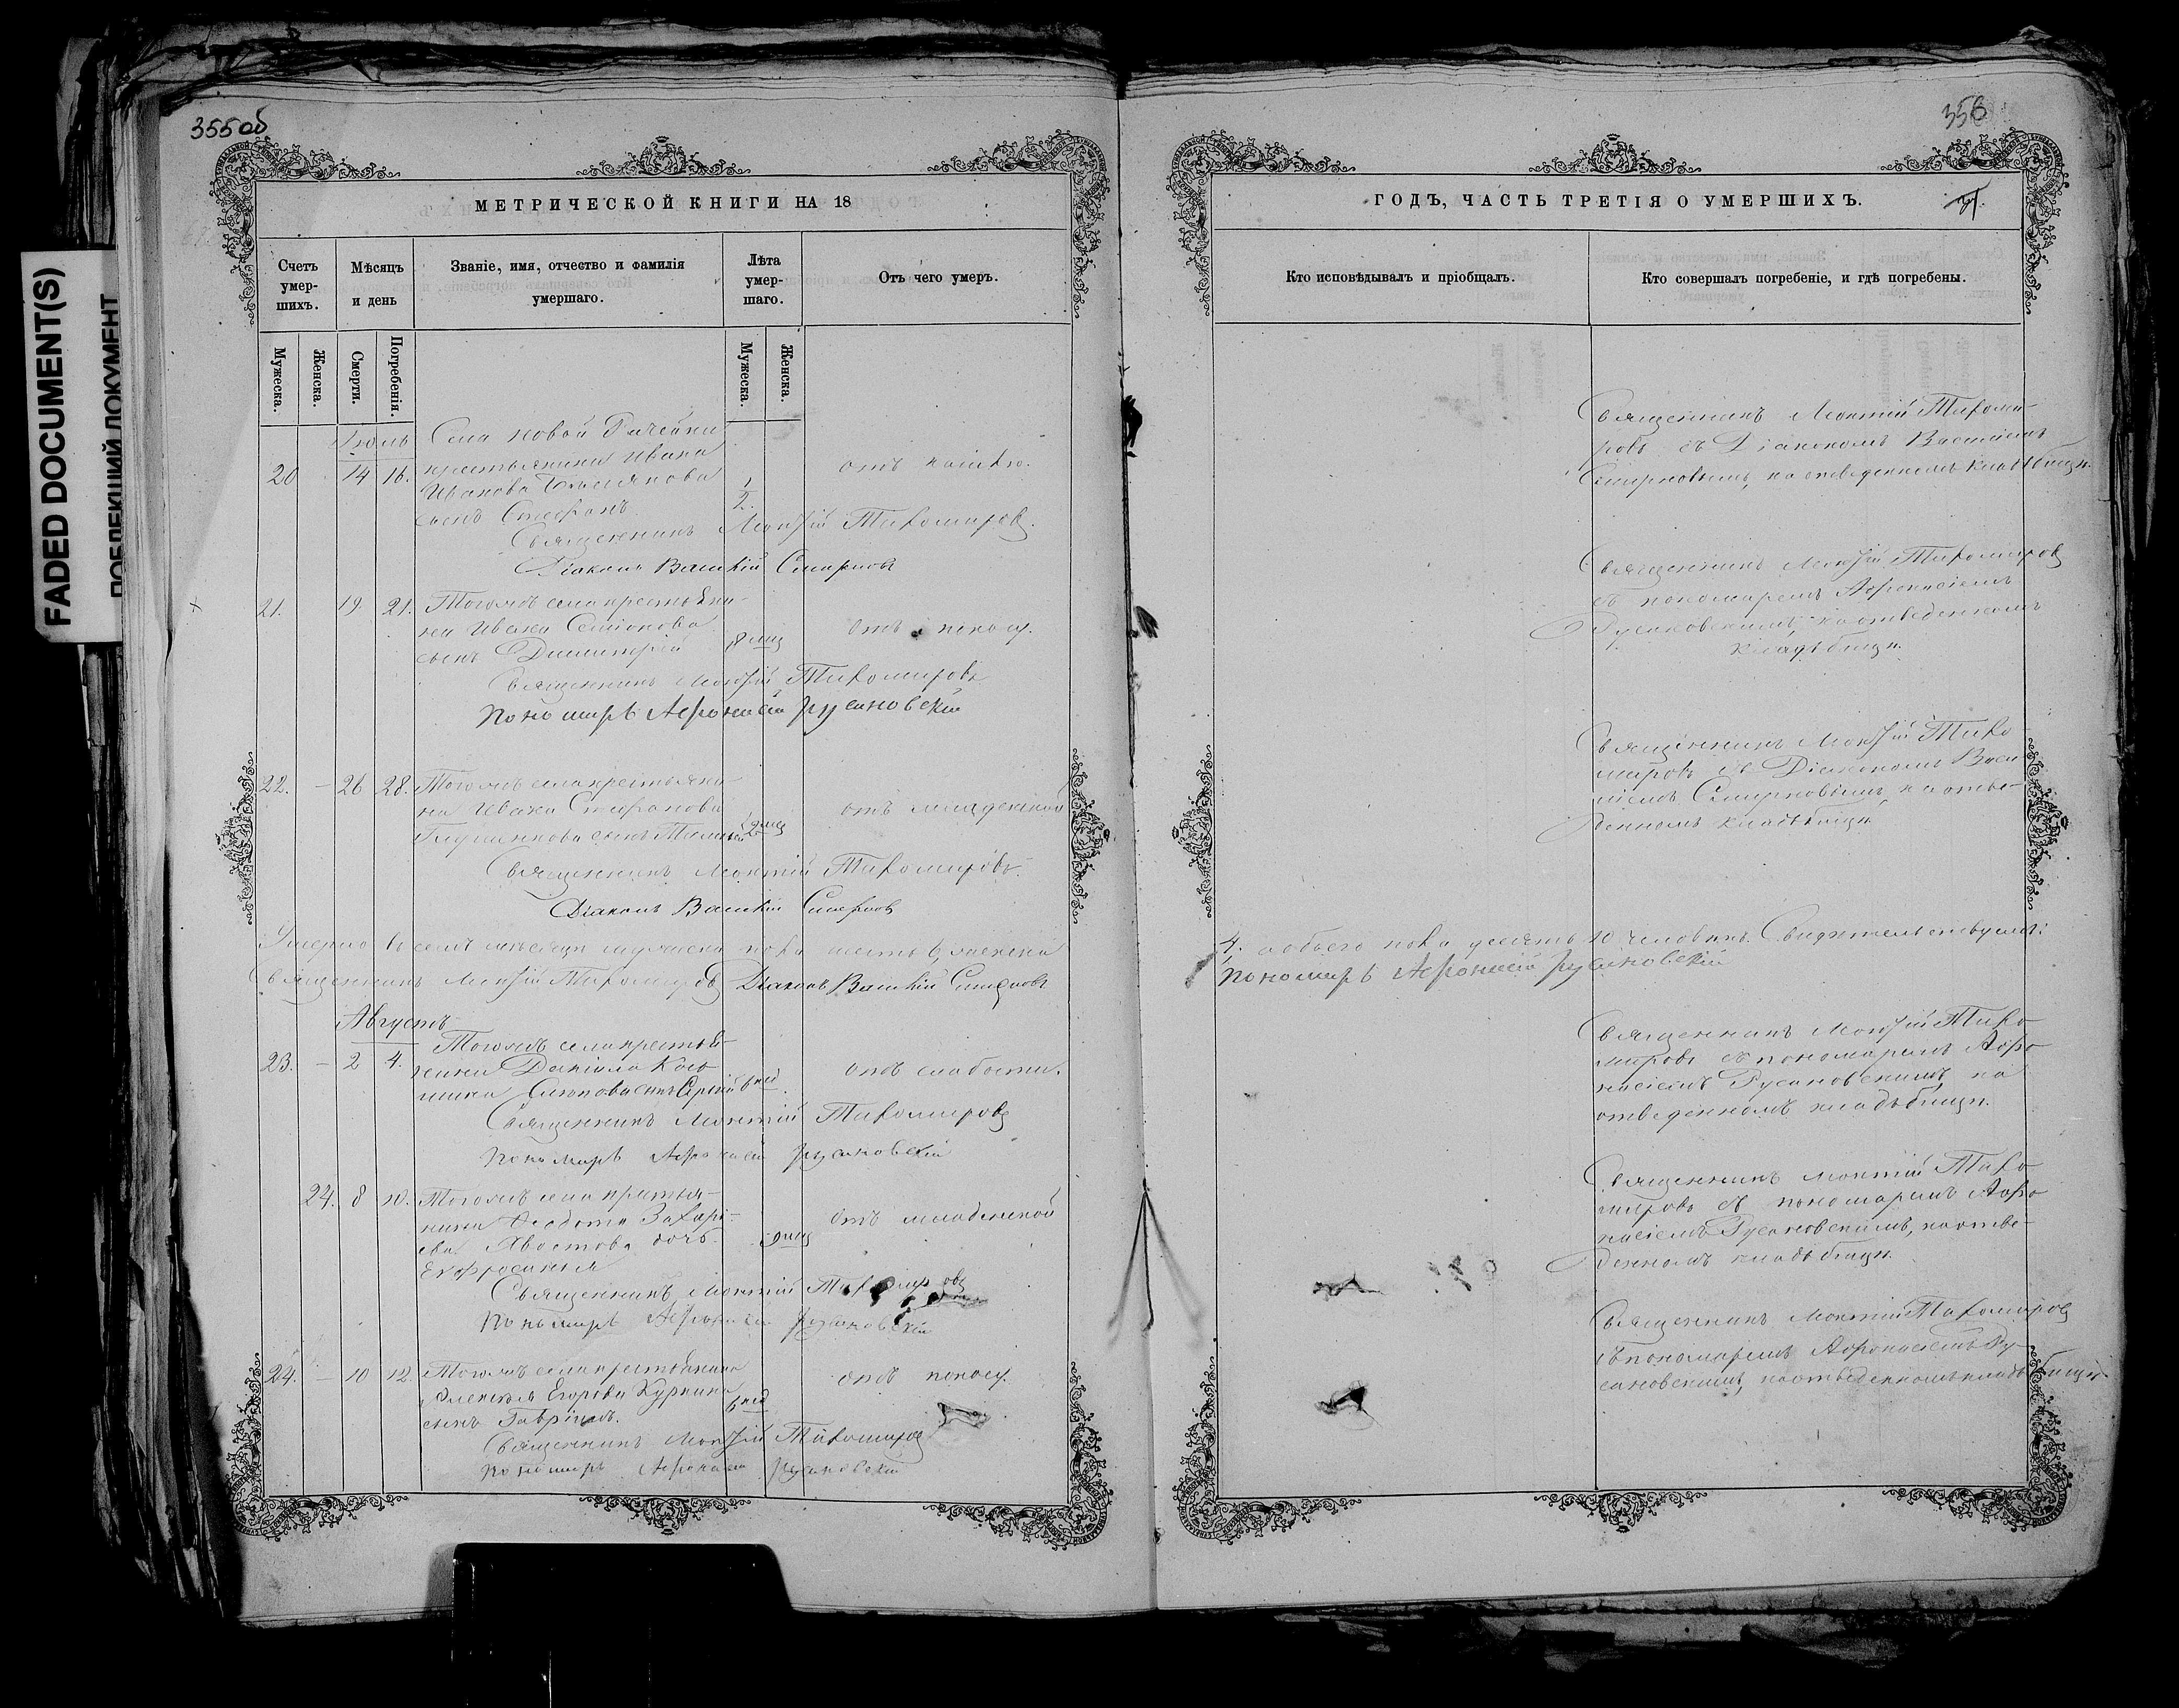 355об
МЕТРИЧЕСКОЙ КНИГИ НА 18
Счетъ умер-шихъ.
Мѣсяцъ и день
Званіе, имя, отчество и фамилія умершаго.
Лѣта умер-шаго.
Отъ чего умеръ.
Мужеска.
Женска.
Смерти.
Погребенія.
Мужеска.
Женска.
Іюль
Села Новой
20 14 16. крестьянина Ивана
Иванова 1/2. отъ кашлю.
сынъ Стефанъ
Священникъ Мокій Тихомировъ.
Діаконъ Василій Смирновъ
21. 19. 21. Тогожъ села крестьяни-
на Ивана Семіонова
сынъ Димитрій 8 мц отъ поносу.
Священникъ Мокій Тихомировъ
Пономарь Афонасій Русановскій
22. – 26 28. Тогожъ села крестьяни-
на Ивана Стефанова
сынъ 2 мц отъ младенской
Священникъ Мокій Тихомировъ.
Діаконъ Василій Смирновъ
Умерло въ семъ мѣсяцѣ мужеска пола шесть 6, женска
Священникъ Мокій Тихомировъ Діаконъ Василій Смирновъ
Августъ
Тогожъ села крестья-
23. – 2 4. нина Даніила
сынъ Сергій 6 нед отъ слабости.
Священникъ Мокій Тихомировъ
Пономарь Афонасій Русановскій
24. 8 10. Тогожъ села крестья-
нина Феодота Захарі-
ева дочь 9 мц отъ младенской
Евфросинія
Священникъ Мокій Тихомировъ
Пономарь Афонасій Русановскій
24. – 10 12. Тогожъ села крестьянина
Егорова Куркина 6 нед отъ поносу.
сынъ Гавріилъ.
Священникъ Мокій Тихомировъ
Пономарь Афонасій Русановскій
356
ГОДЪ, ЧАСТЬ ТРЕТІЯ О УМЕРШИХЪ.
Кто исповѣдывалъ и пріобщалъ.
Кто совершалъ погребеніе, и гдѣ погребены.
Священникъ Мокій Тихоми-
ровъ съ Діакономъ Василіемъ
Смирновымъ, на отведенномъ кладбищи.
Священникъ Мокій Тихомировъ
съ пономаремъ Афонасіемъ
Русановскимъ, на отведенномъ
кладьбищи.
Священникъ Мокій Тихо-
мировъ съ Діакономъ Васи-
ліемъ Смирновымъ, на отве-
денномъ кладьбищи
4. а обоего пола десять 10 человѣкъ. Свидѣтельствуемъ:
Пономарь Афонасій Русановскій
Священникъ Мокій Тихо-
мировъ съ пономаремъ Афо-
насіемъ Русановскимъ на
отведенномъ кладьбищи.
Священникъ Мокій Тихо-
мировъ съ пономаремъ Афо-
насіемъ Русановскимъ, на отве-
денномъ кладьбищи.
Священникъ Мокій Тихомировъ
съ пономаремъ Афонасіемъ Ру-
сановскимъ, на отведенномъ кладьбищи
FADED DOCUMENT(S)